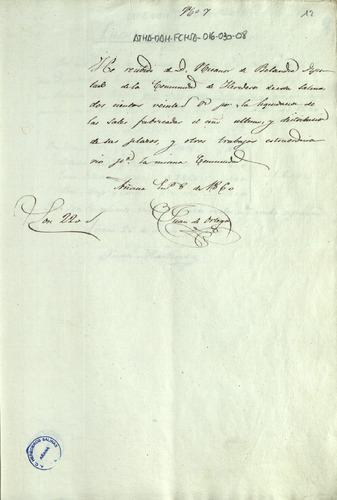 Nº 7
12
ATHA-DAH-FCHSA-016-030-08
He recibido de D. Nicanor de Bolandia Apo
derado de la Comunidad de Herederos de esta Salina
dos cientos veinte rs por la liquidacion de
las sales fabricadas el año ultimo, y distribucion
de sus plazos, y otros trabajos estraordina
rios pª la misma Comunidad
Añana 8 de 1860
Son 220 rs
Juan de Ortega